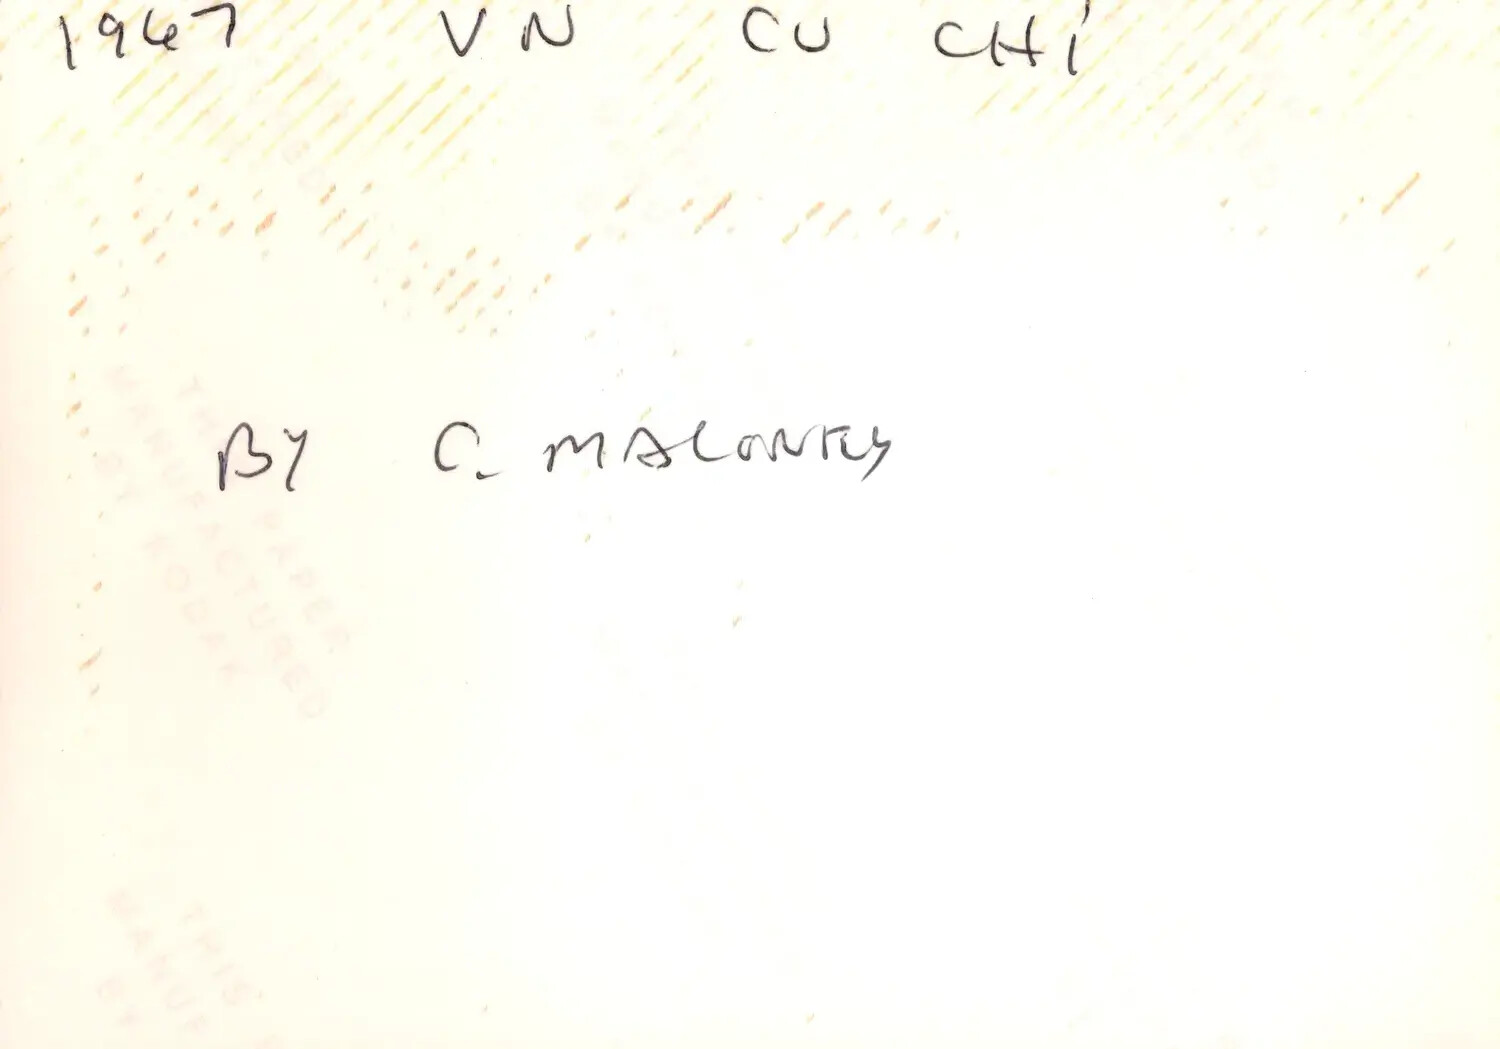 1967 VN CU CHi
BY C. MALONEY
THIS PAPER
MANUFACTURED
BY KODAK
THIS
MANUF
BY